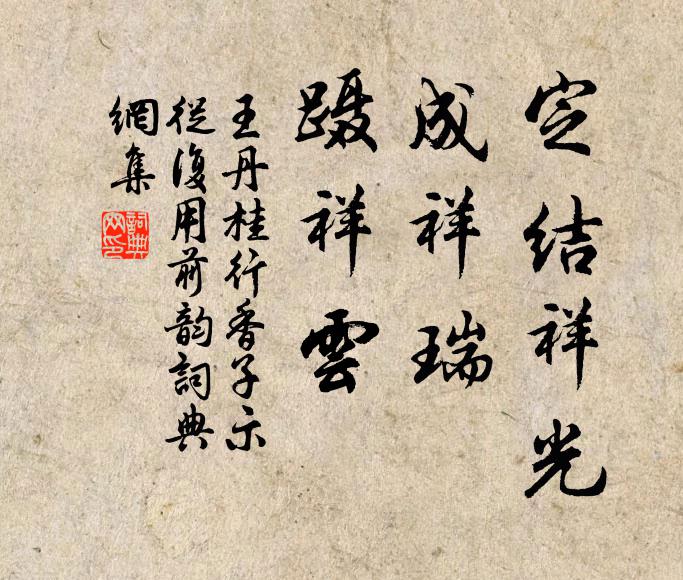 定结祥光
成祥瑞
蹑祥雲
王丹桂行香子示
從復用前韵詞典
網集
詞典网印